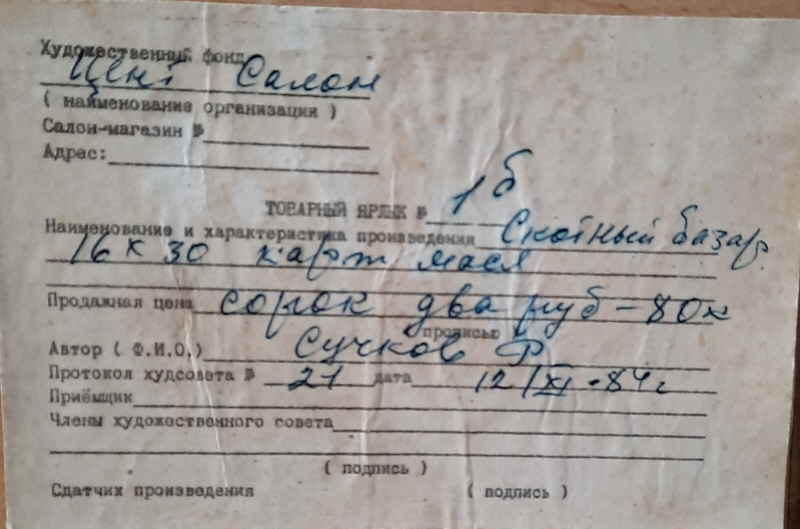 Художественный фонд
Цент Салон
( наименование организации )
Салон-магазин №
Адрес:
ТОВАРНЫЙ ЯРЛЫК № 1б
Наименование и характеристика произведения Скотный базар
16 х 30 карт масл
Продажная цена сорок два руб - 80к
прописью
Автор ( Ф.И.О.) Сучков Ф
Протокол худсовета № 21 дата 12/XI-84г
Приёмщик
Члены художественного совета
( подпись )
Сдатчик произведения ( подпись )